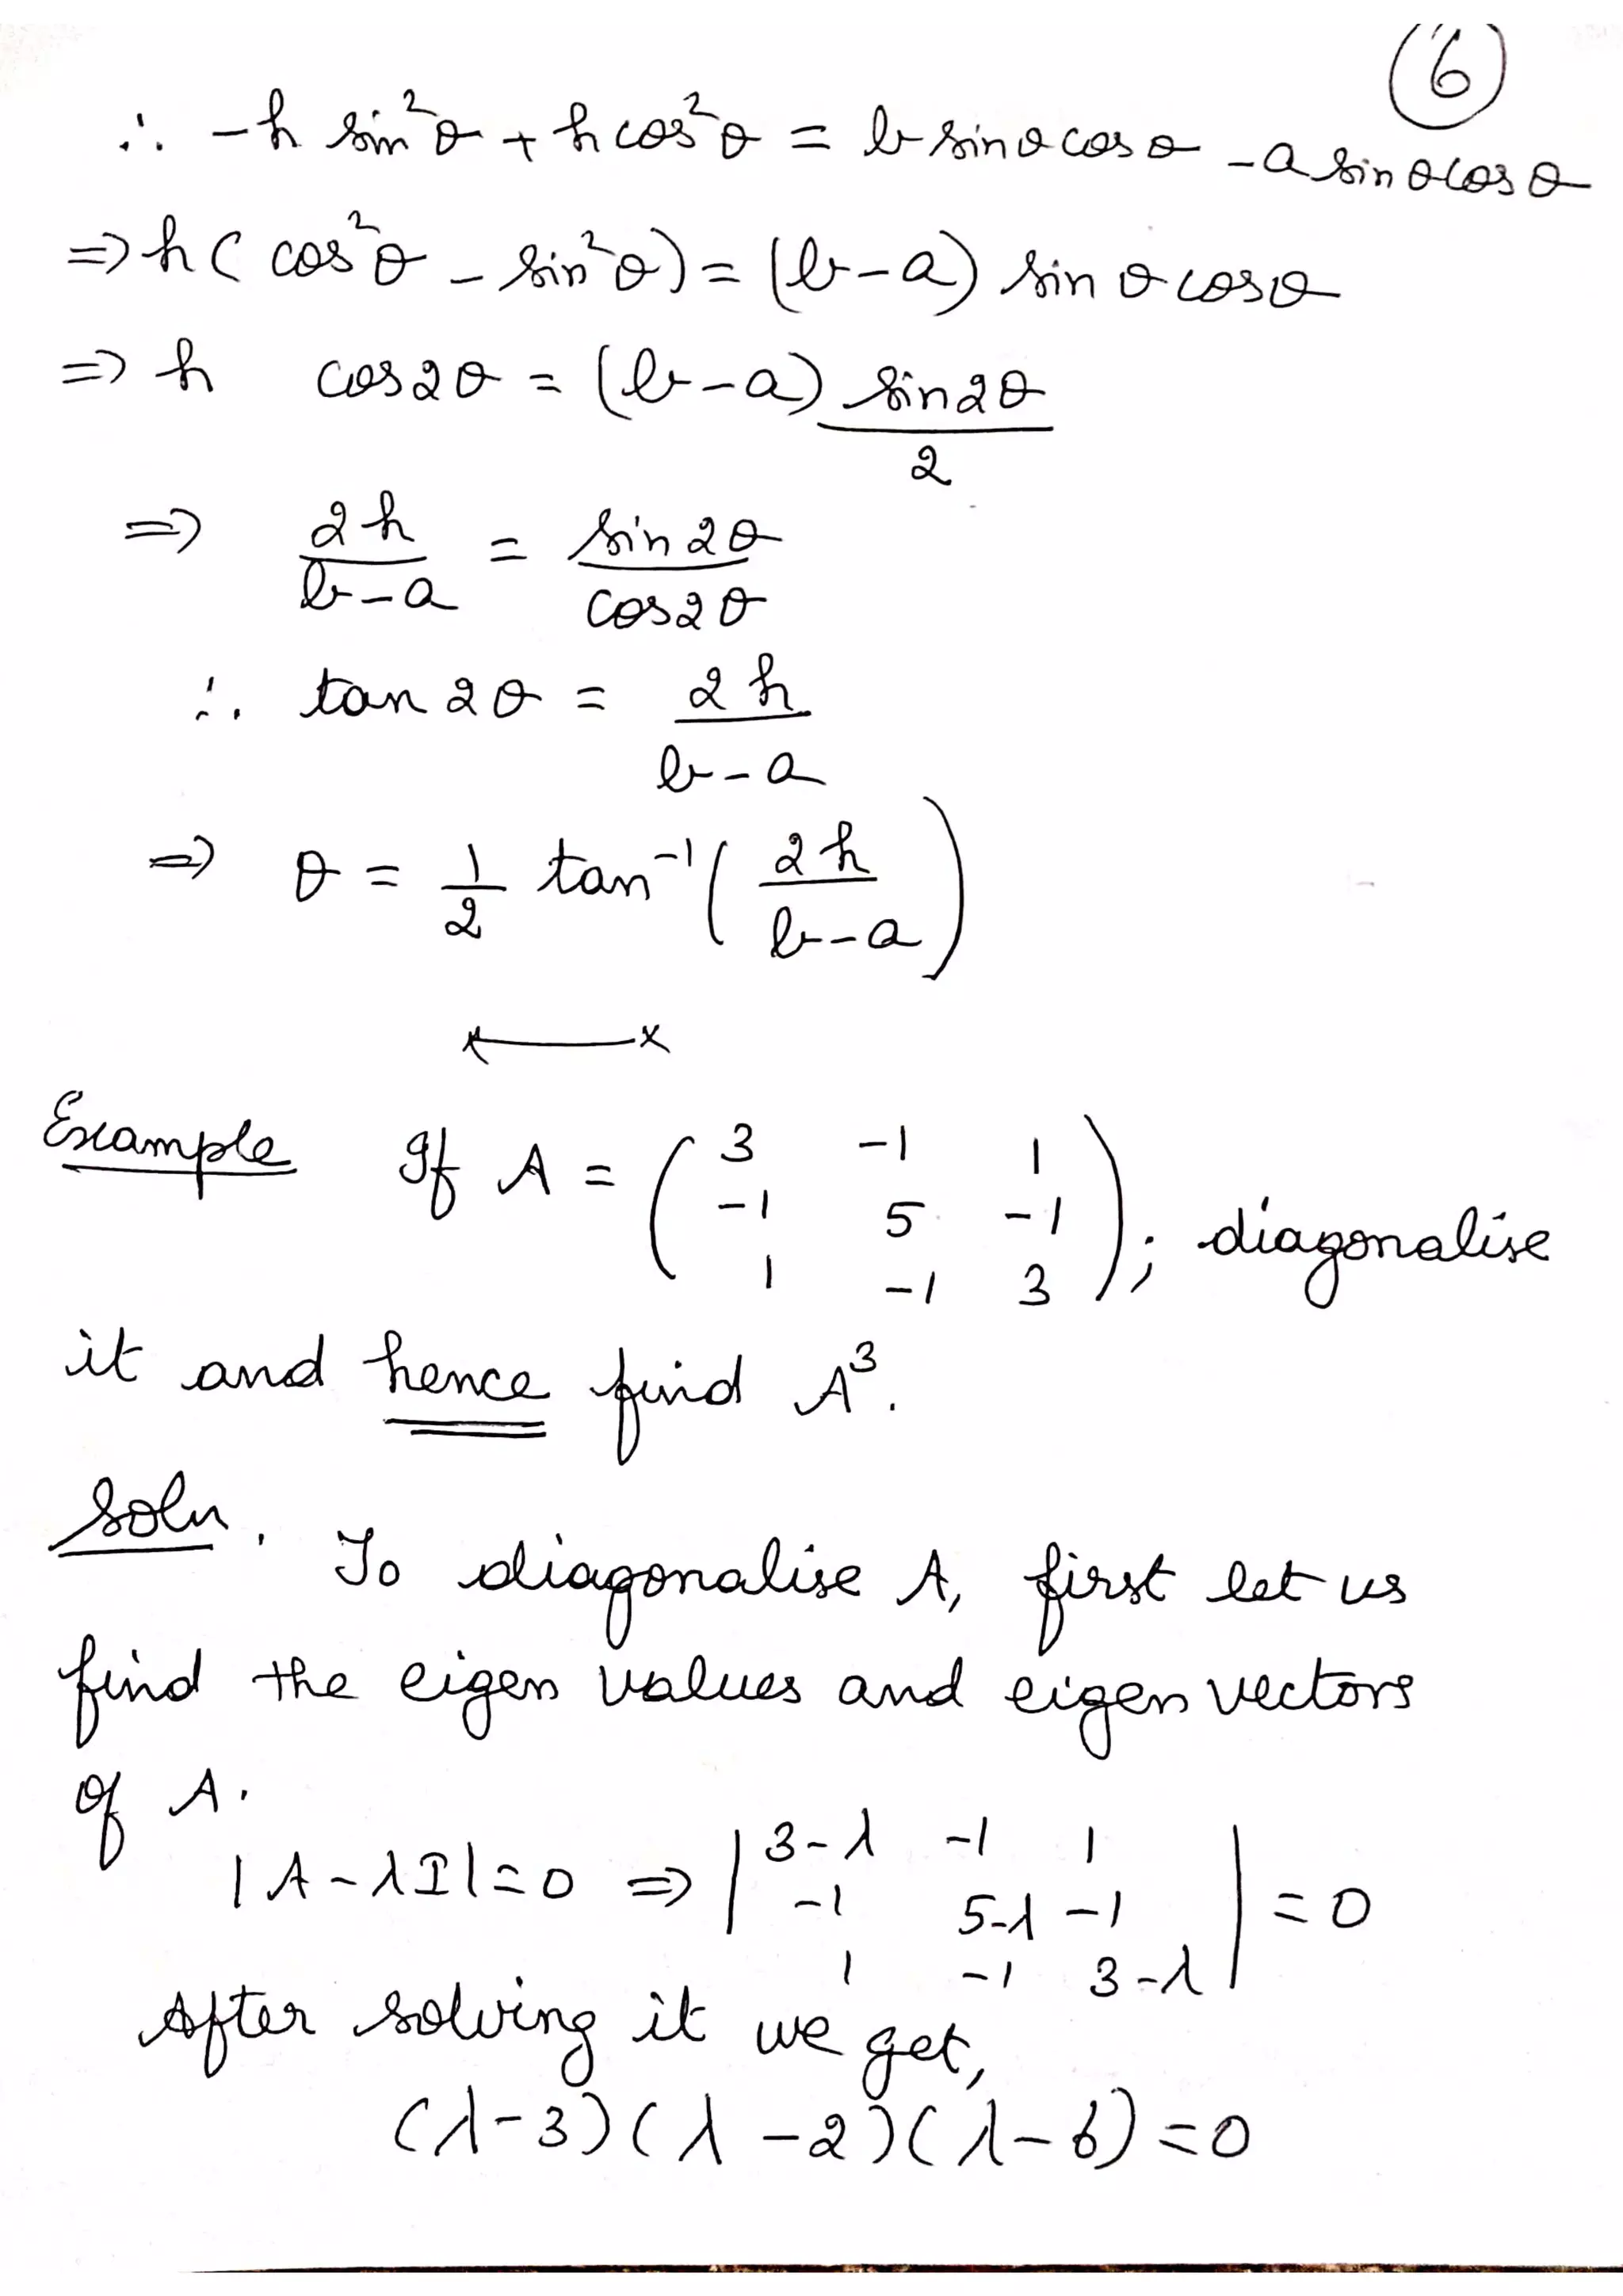 6
∴ -h sin²θ + h cos²θ = b sinθ cosθ - a sinθ cosθ
=> h ( cos²θ - sin²θ) = (b-a) sinθ cosθ
=> h cos2θ = (b-a) sin2θ/2
=> 2h/(b-a) = sin2θ/cos2θ
∴ tan 2θ = 2h/(b-a)
=> θ = 1/2 tan⁻¹( 2h/(b-a) )
Example If A = ( 3 -1 1
-1 5 -1
1 -1 3 ); diagonalise
it and hence find A³.
Soln. To diagonalise A, first let us
find the eigen values and eigen vectors
of A.
|A-λI|=0 => | 3-λ -1 1
-1 5-λ -1
1 -1 3-λ | = 0
After solving it we get,
(λ-3)(λ-2)(λ-6)=0